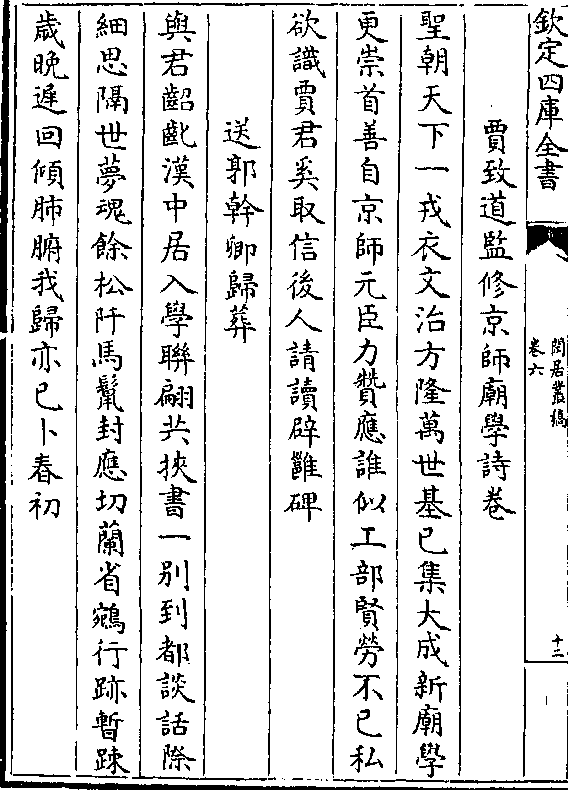 欽定四庫全書
閒居叢稿
卷六
十二
賈致道監修京師廟學詩卷
聖朝天下一戎衣文治方隆萬世基已集大成新廟學
更崇首善自京師元臣力贊應誰似工部賢勞不已私
欲識賈君奚取信後人請讀辟雝碑
送郭幹卿歸葬
與君齠齔漢中居入學聯翩共挾書一別到都談話除
細思隔世夢魂餘松阡馬鬛封應切蘭省鵷行跡暫踈
歳晚遲回傾肺腑我歸亦已卜春初